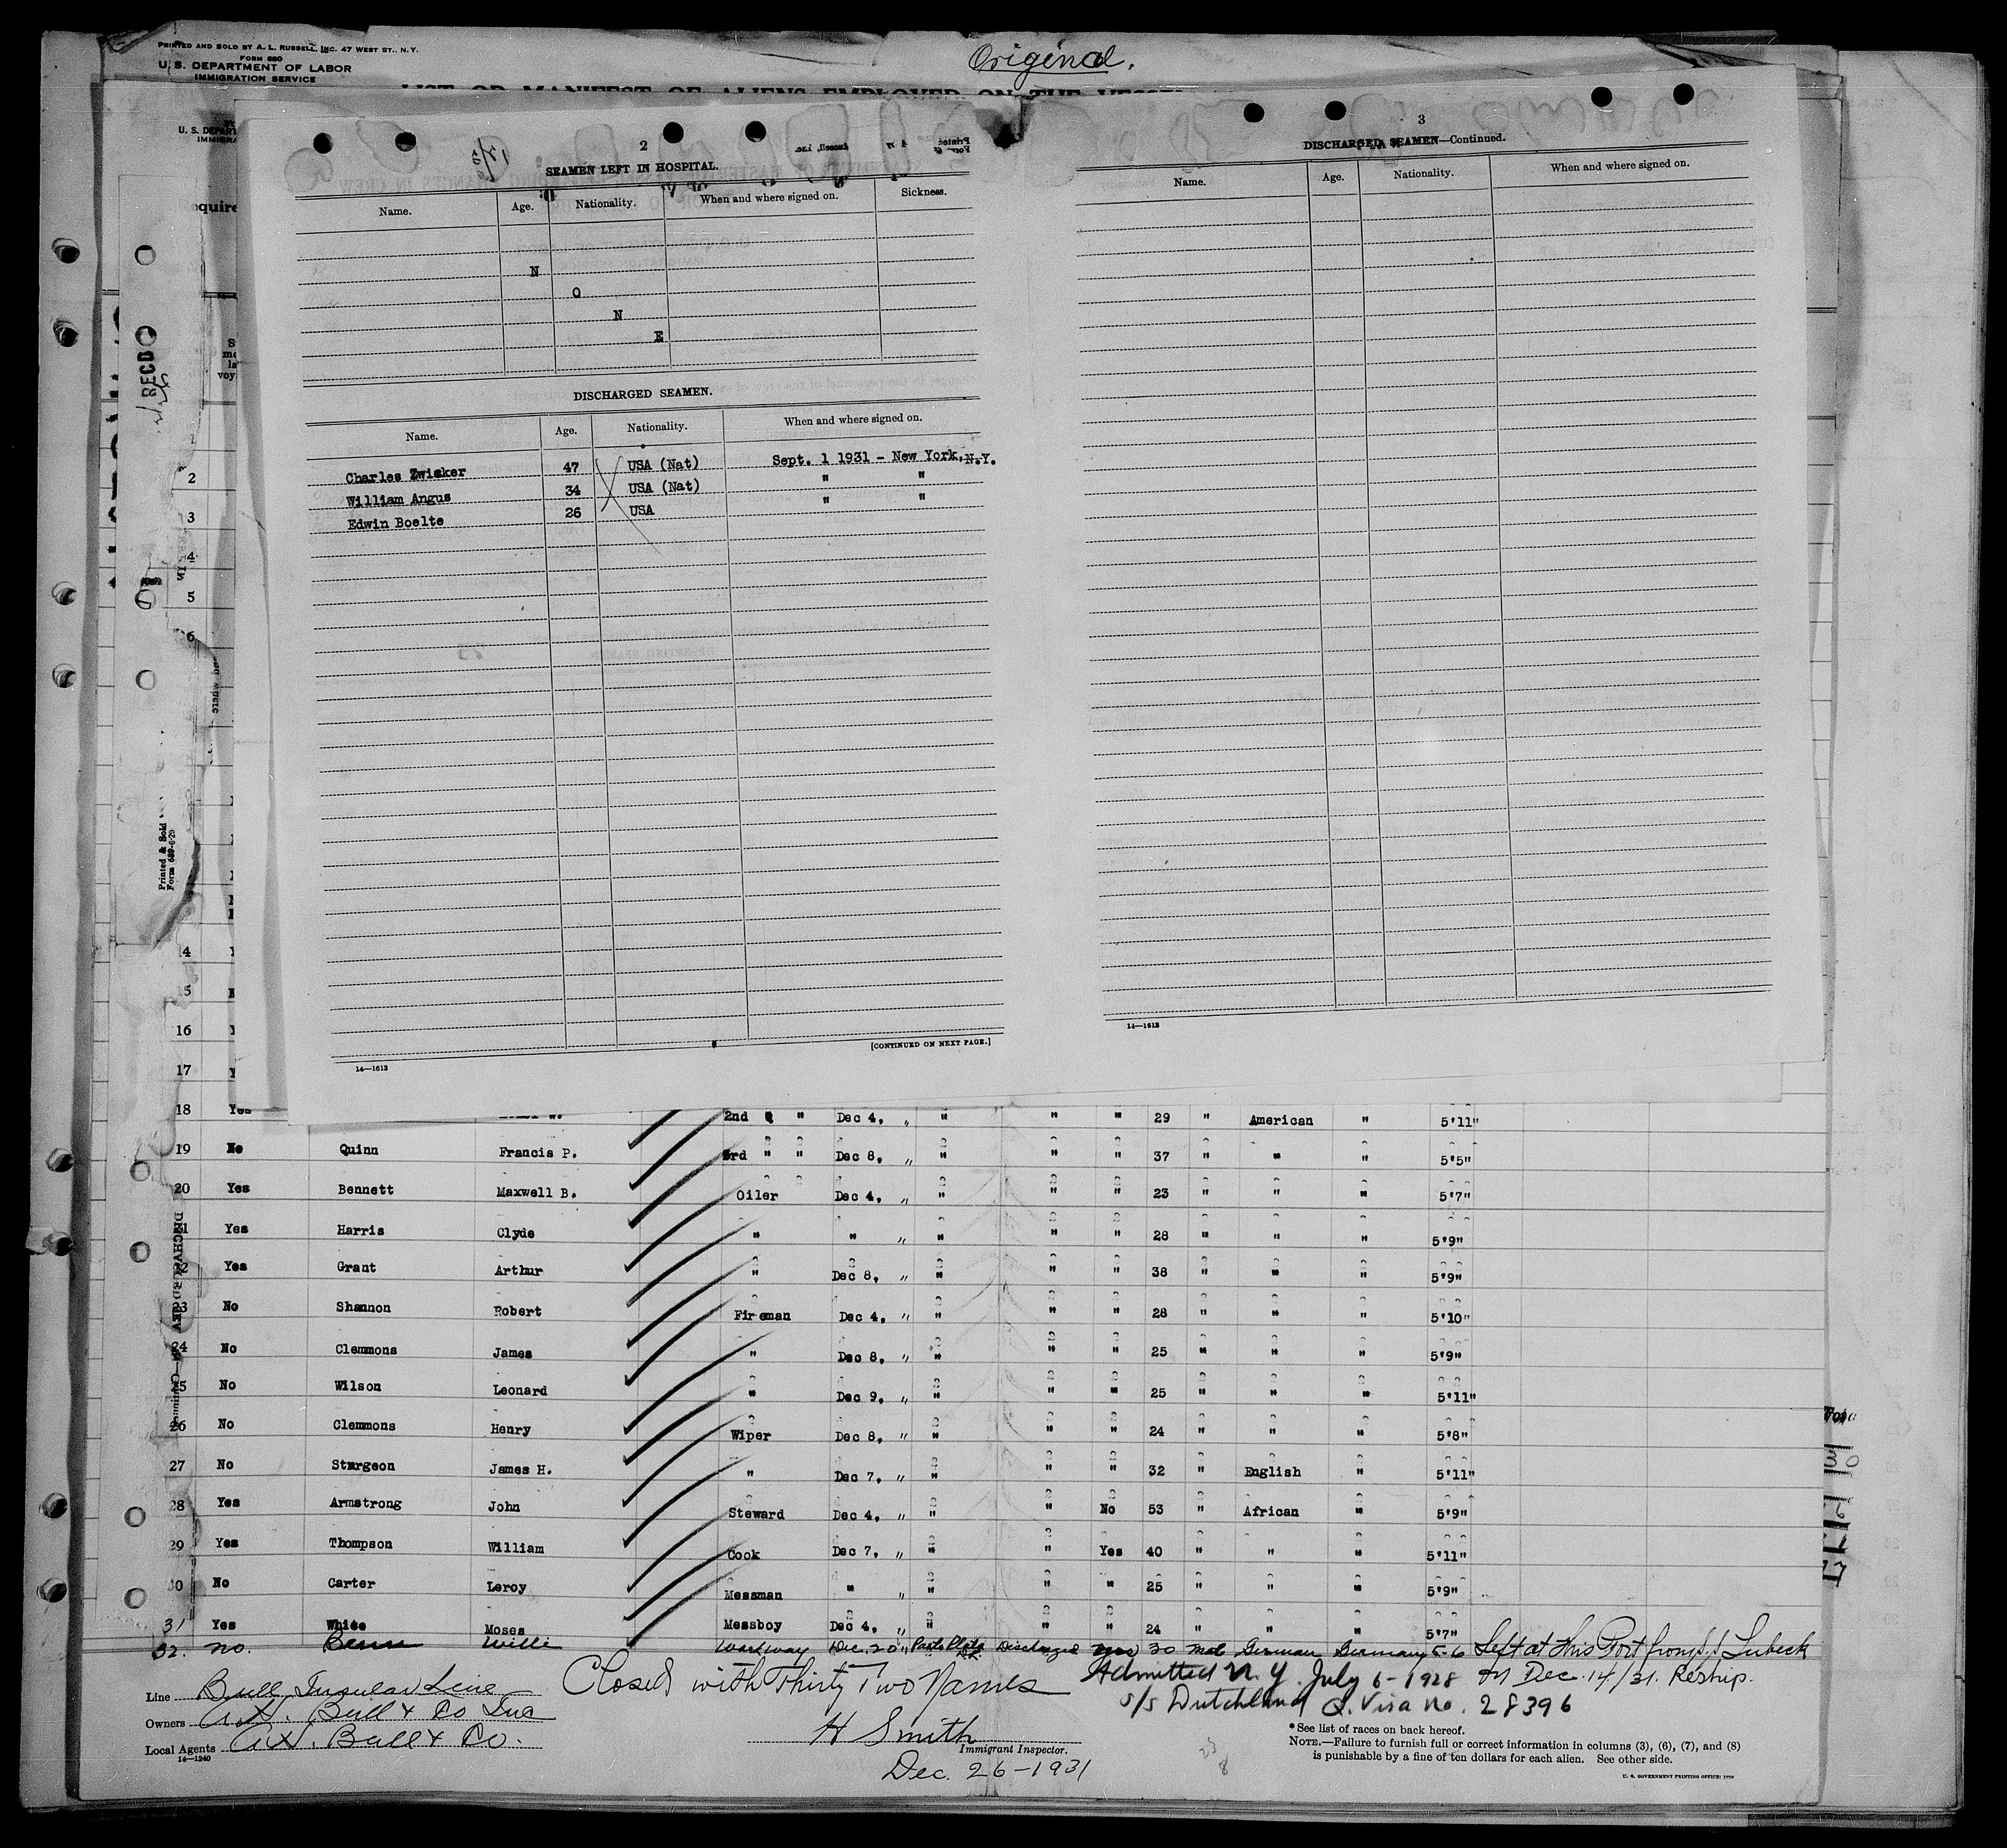 PRINTED AND SOLD BY A. L. RUSSELL, INC. 47 WEST ST., N. Y.
FORM 680
U. S. DEPARTMENT OF LABOR
IMMIGRATION SERVICE
Original.
LIST OR MANIFEST OF ALIENS EMPLOYED ON THE VESSEL
2
SEAMEN LEFT IN HOSPITAL.
Name. Age. Nationality. When and where signed on. Sickness.
N
O
N
E
DISCHARGED SEAMEN.
Name. Age. Nationality. When and where signed on.
Charles Zwisker 47 USA (Nat) Sept. 1 1931 - New York, N.Y.
William Angus 34 USA (Nat) " "
Edwin Boelte 26 USA " "
[CONTINUED ON NEXT PAGE.]
14—1613
3
DISCHARGED SEAMEN—Continued.
Name. Age. Nationality. When and where signed on.
14—1613
RECD
Printed & Sold
Form 689-6-29
2
3
4
5
6
14
15
16
17
18 Yes 2nd " " Dec 4, " " " " 29 " American " 5'11"
19 No Quinn Francis P. 3rd " " Dec 8, " " " " 37 " " " 5'5"
20 Yes Bennett Maxwell B. Oiler Dec 4, " " " " 23 " " " 5'7"
21 Yes Harris Clyde " " " " " " 28 " " " 5'9"
22 Yes Grant Arthur " Dec 8, " " " " 38 " " " 5'9"
23 No Shannon Robert Fireman Dec 4, " " " " 28 " " " 5'10"
24 No Clemmons James " Dec 8, " " " " 25 " " " 5'9"
25 No Wilson Leonard " Dec 9, " " " " 25 " " " 5'11"
26 No Clemmons Henry Wiper Dec 8, " " " " 24 " " " 5'8"
27 No Sturgeon James H. " Dec 7, " " " " 32 " English " 5'11"
28 Yes Armstrong John Steward Dec 4, " " " No 53 " African " 5'9"
29 Yes Thompson William Cook Dec 7, " " " Yes 40 " " " 5'11"
30 No Carter Leroy Messman " " " " " 25 " " " 5'9"
31 Yes White Moses Messboy Dec 4, " " " " 24 " " " 5'7"
32. no. Willi Workway Dec. 20 " Discharged yes 30 mal German Germany 5-6 Left at this Port from S.S. Lubeck
Closed with Thirty Two Names Admitted N.Y. July 6-1928 on Dec. 14/31. Reship.
S/S Dutchland Q. Visa No. 28396
Line Bull Insular Line
Owners A.H. Bull & Co Inc
Local Agents A.H. Bull & Co.
14—1240
H Smith
Immigrant Inspector.
Dec. 26-1931
* See list of races on back hereof.
NOTE.—Failure to furnish full or correct information in columns (3), (6), (7), and (8)
is punishable by a fine of ten dollars for each alien. See other side.
U. S. GOVERNMENT PRINTING OFFICE: 1929